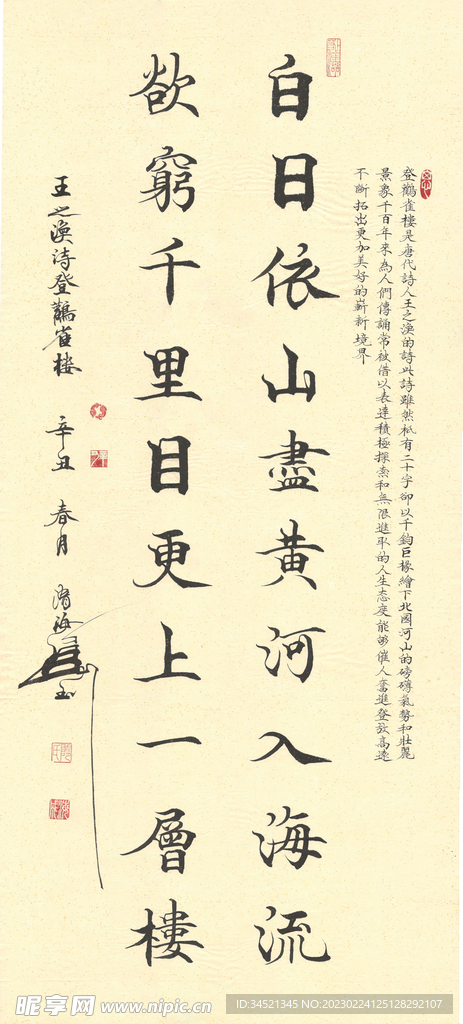 登鸛雀樓是唐代詩人王之渙的詩此詩雖然祇有二十字卻以千鈞巨椽繪下北國河山的磅礴氣勢和壯麗
景象千百年來為人們傳誦常被借以表達積極探索和無限進取的人生态度能够催人奮進登放高遠
不斷拓出更加美好的嶄新境界
白日依山盡黃河入海流
欲窮千里目更上一層樓
王之渙詩登鸛雀樓 辛丑 春月
昵享网 www.nipic.cn
ID:34521345 NO:20230224125128292107